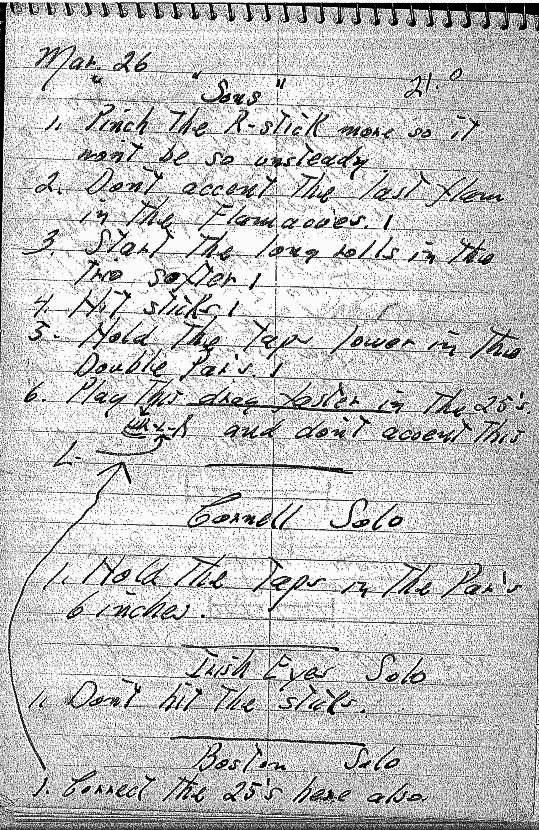 Mar. 26
"Sons" 21.0
1. Pinch the R-stick more so it
won't be so unsteady
2. Don't accent the last flam
in the Flamacues. 1
3. Start the long rolls in the
two softer 1
4. Hit sticks 1
5. Hold the taps lower in the
Double Par's. 1
6. Play this drag faster in the 25's.
R and don't accent this
L-
Cornell Solo
1. Hold the taps in the Par's
6 inches.
Irish Eyes Solo
1. Don't hit the sticks.
Boston Solo
1. Correct the 25's here also.